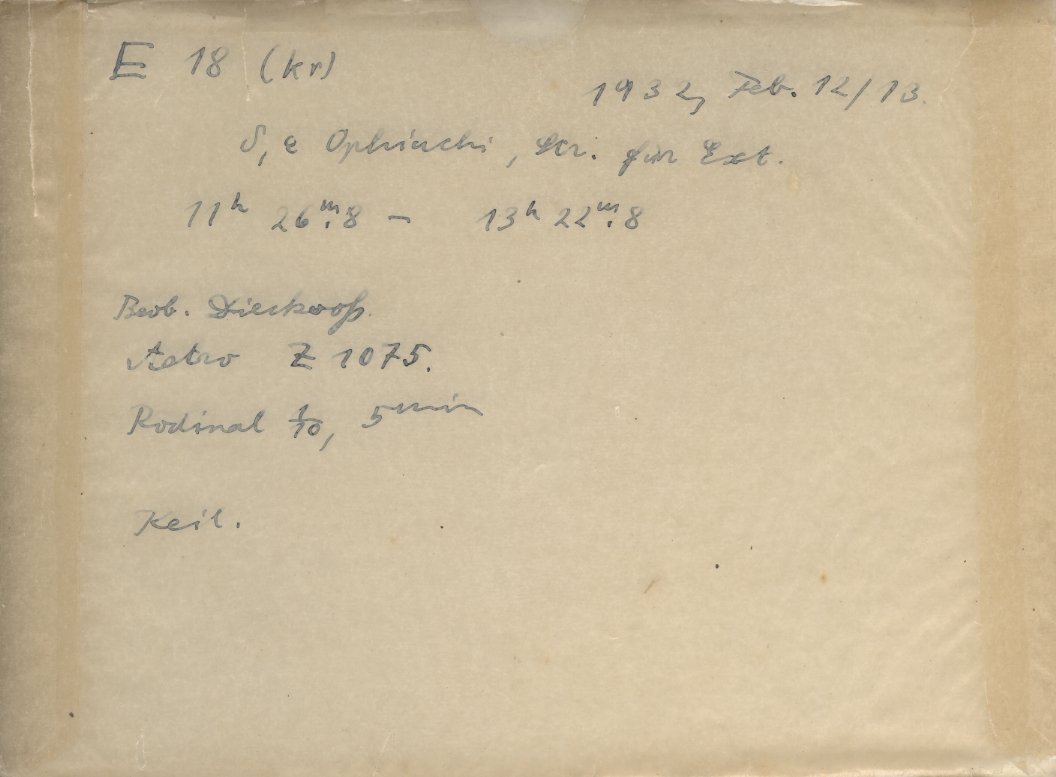 E 18 (kr)
1932, Feb. 12/13.
δ, ε Ophiuchi, Str. für Ext.
11ʰ 26ᵐ.8 – 13ʰ 22ᵐ.8
Beob. Dieckvoß.
Astro Z 1075.
Rodinal 1/10, 5ᵐⁱⁿ
Keil.